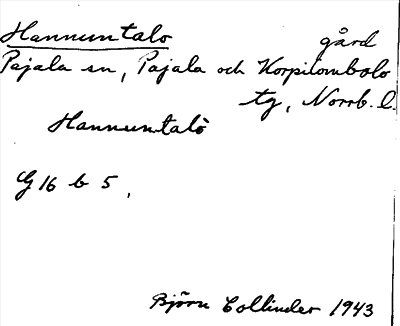 Hannuntalo gård
Pajala sn, Pajala och Korpilombolo
tg, Norrb. l.
Hannuntalò
G 16 b 5,
Björn Collinder 1943